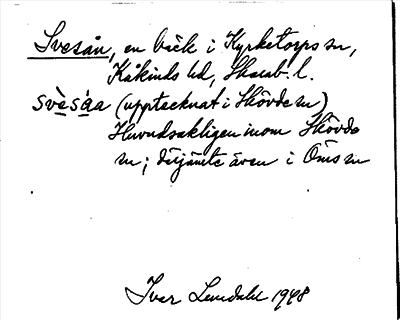 Svesån, en bäck i Kyrketorps sn,
Kåkinds hd, Skarab. l.
svèsá̀a (upptecknat i Skövde sn)
Huvudsakligen inom Skövde
sn; därjämte även i Öms sn
Ivar Lundahl 1948